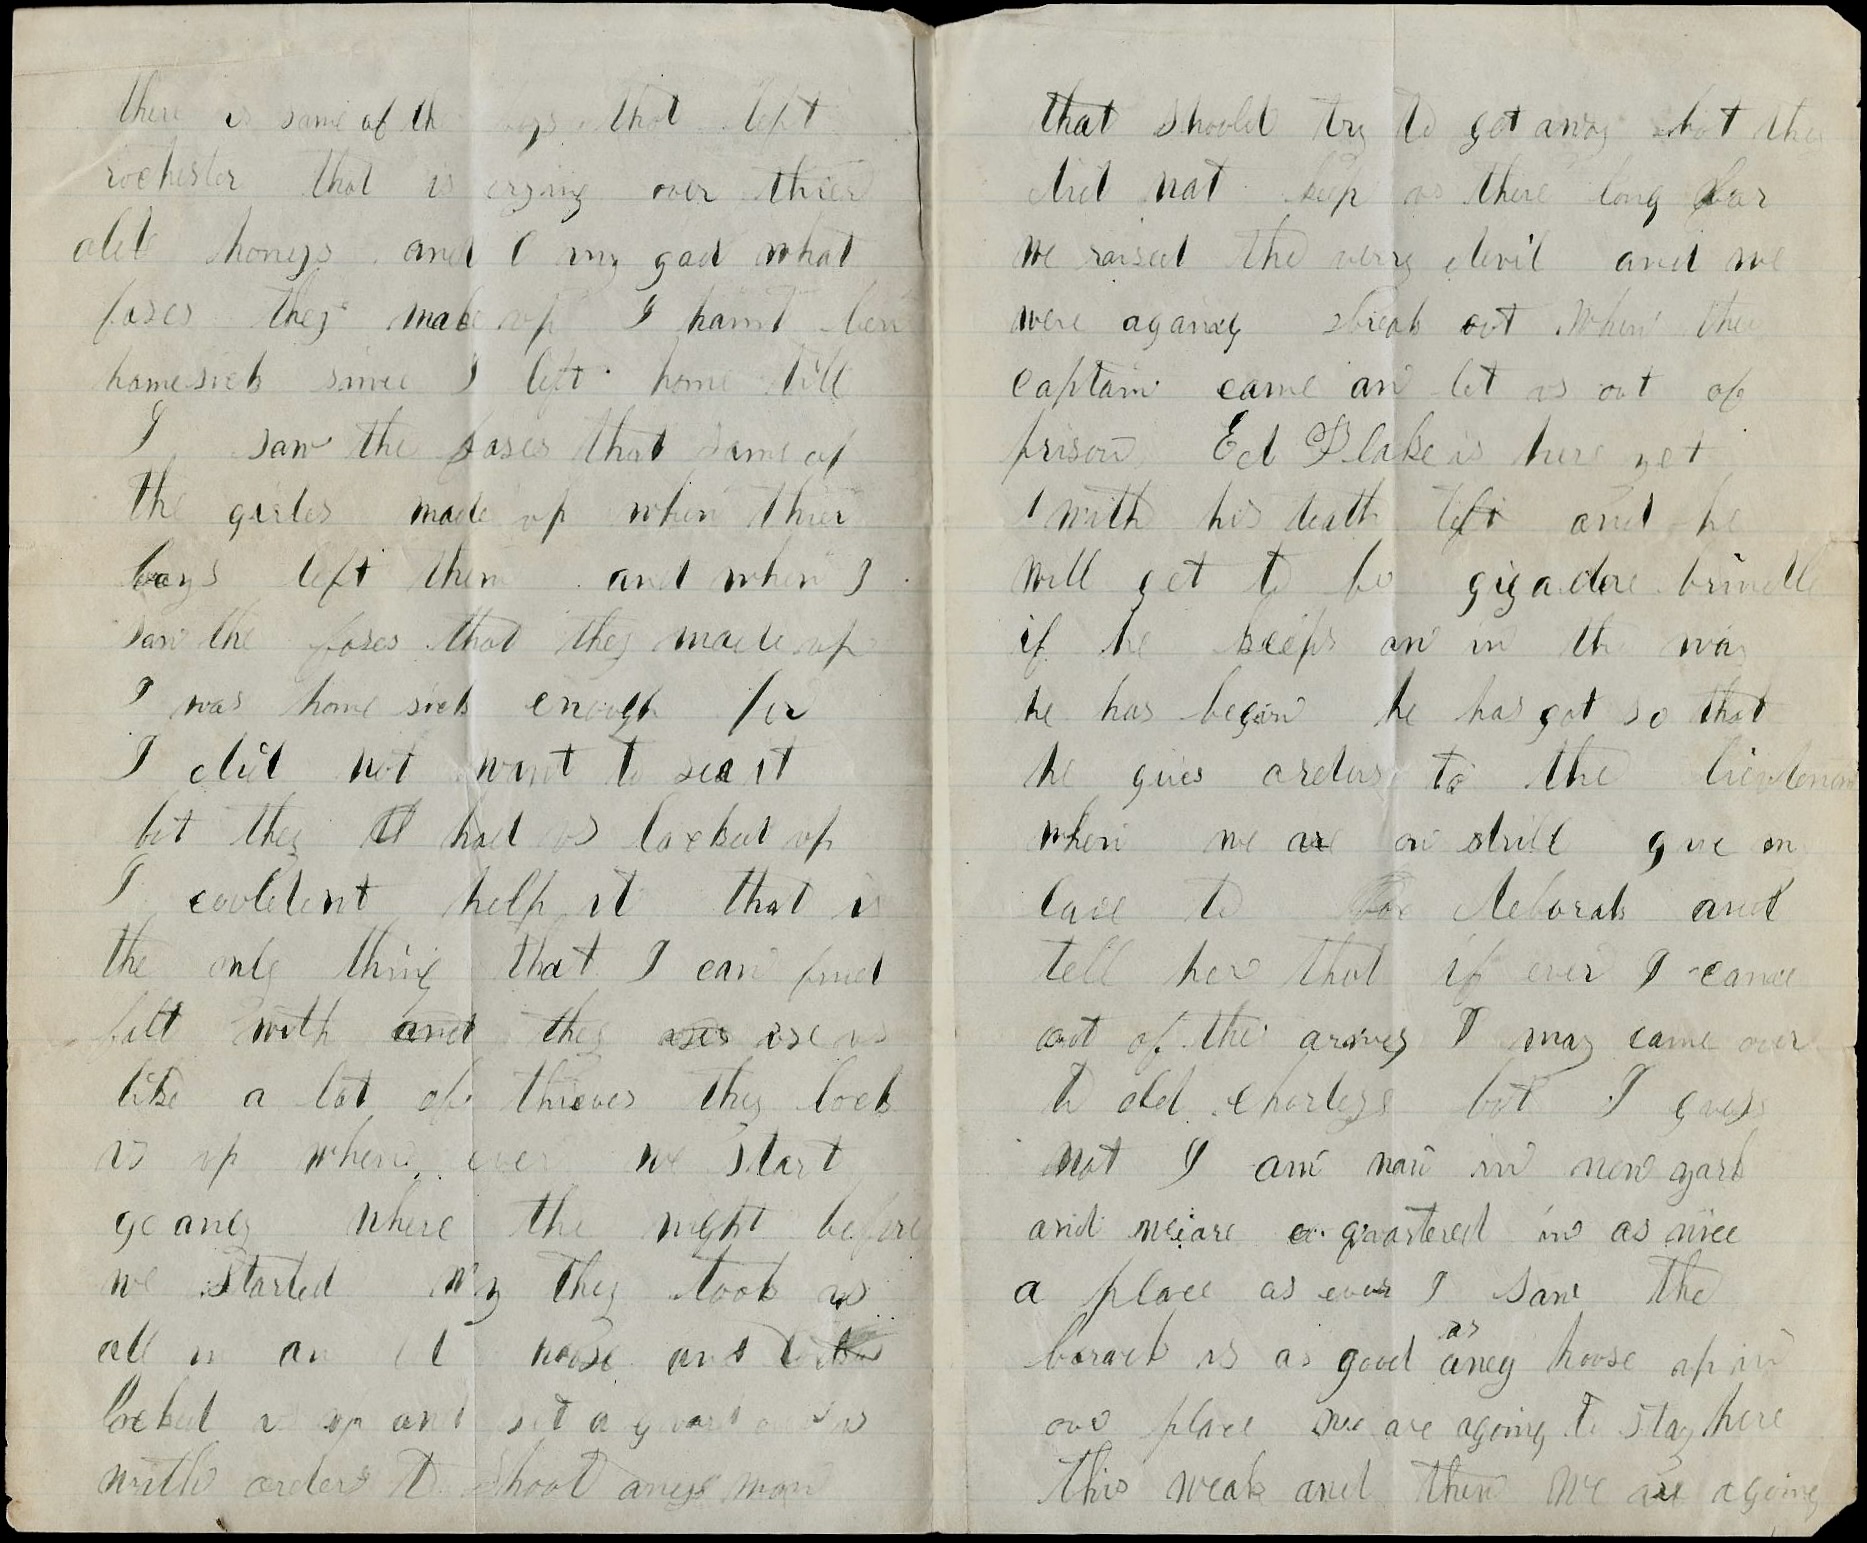 there is some of th boys that left
rochester that is crying over thier
old honeys and O my god what
fases they make up I haint ben
homesick since I left home till
I saw the fases that some of
the girles made up when thier
boys left them and when I
saw the fases that they made up
I was home sick enough for
I did not want to sea it
but they had us locked up
I couldent help it that is
the only thing that I can find
falt with and they use us
like a lot of thieves they lock
us up when ever we start
go aney where the night before
we started they took us
all in an house and
locked us up and set a guard over us
with orders to shoot aney man
that should try to get away but they
did not keep us there long for
we raised the verry devil and we
were agoaing break out when the
captain came an let us out of
prison Ed Flake is here yet
with his teath left and he
will get to be gigadore brindle
if he keeps on in the way
he has began he has got so that
he gives orders to the lieutenant
when we are on drill give my
love to Deborah and
tell her that if ever I come
out of the armey I may come over
to old charleys but I guess
not I am now in new york
and we are quartered in as nice
a place as ever I saw the
barack is as good as aney house up in
our place we are agoing to stay here
this weak and then we are agoing